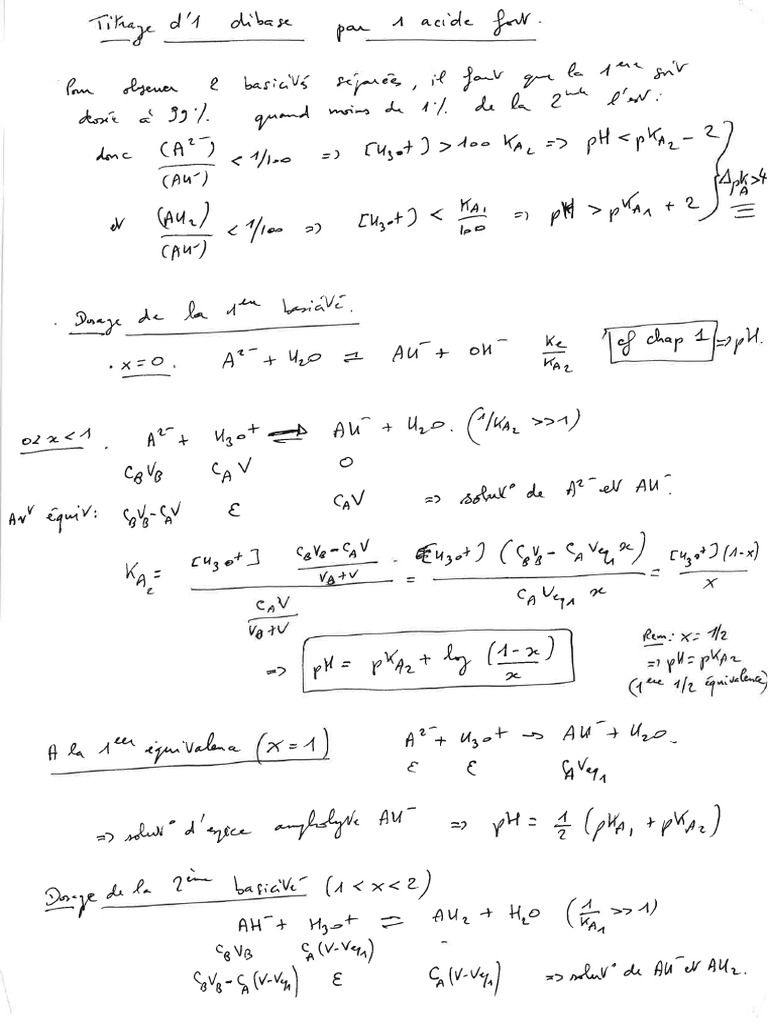 Titrage d'1 dibase par 1 acide fort.
Pour observer 2 basicités séparées, il faut que la 1ère soit
dosée à 99% quand moins de 1% de la 2nde l'est:
donc (A²⁻)/(AH⁻) < 1/100 => [H₃O⁺] > 100 K_A₂ => pH < pK_A₂ - 2
ΔpK_A > 4
et (AH₂)/(AH⁻) < 1/100 => [H₃O⁺] < K_A₁/100 => pH > pK_A₁ + 2
. Dosage de la 1ère basicité.
. x=0. A²⁻ + H₂O ⇌ AH⁻ + OH⁻ Ke/K_A₂ cf chap 1 => pH.
0≤x<1. A²⁻ + H₃O⁺ ⇌ AH⁻ + H₂O. (1/K_A₂ >>1)
C_B V_B C_A V 0
Avt équiv: C_B V_B - C_A V ε C_A V => solut° de A²⁻ et AH⁻.
K_A₂ = [H₃O⁺] ((C_B V_B - C_A V)/(V_B+V)) / (C_A V/(V_B+V)) = [H₃O⁺] (C_B V_B - C_A Veq₁ x) / (C_A Veq₁ x) = [H₃O⁺](1-x)/x
=> pH = pK_A₂ + log ((1-x)/x)
Rem: x=1/2
=> pH = pK_A₂
(1ère 1/2 équivalence)
A la 1ère équivalence (x=1) A²⁻ + H₃O⁺ -> AH⁻ + H₂O.
ε ε C_A Veq₁
=> solut° d'espèce ampholyte AH⁻ => pH = 1/2 (pK_A₁ + pK_A₂)
Dosage de la 2ème basicité (1<x<2)
AH⁻ + H₃O⁺ ⇌ AH₂ + H₂O (1/K_A₁ >>1)
C_B V_B C_A(V-Veq₁) -
C_B V_B - C_A(V-Veq₁) ε C_A(V-Veq₁) => solut° de AH⁻ et AH₂.